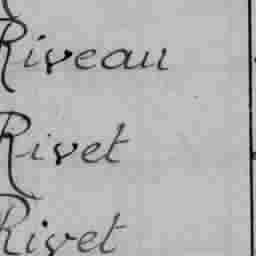 Riveau
Rivet
Rivet